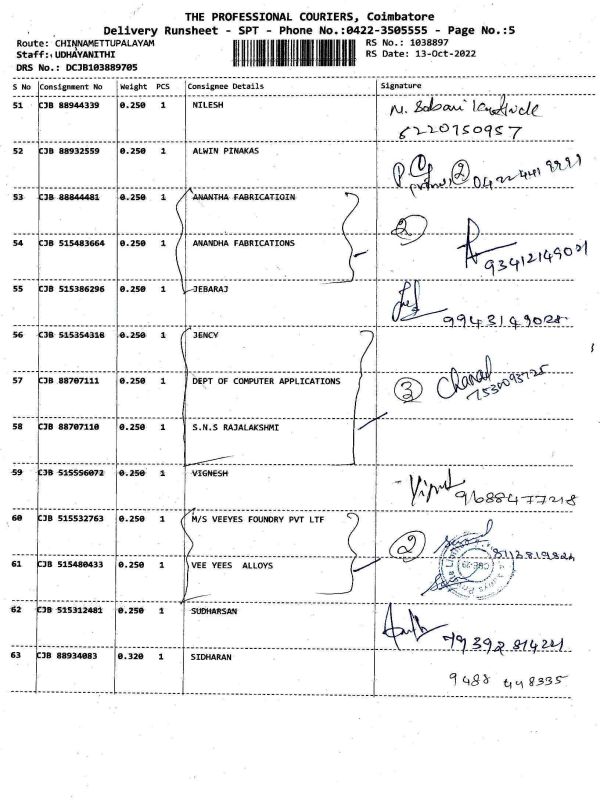 THE PROFESSIONAL COURIERS, Coimbatore
Delivery Runsheet - SPT - Phone No.:0422-3505555 - Page No.:5
Route: CHINNAMETTUPALAYAM RS No.: 1038897
Staff: UDHAYANITHI RS Date: 13-Oct-2022
DRS No.: DCJB103889705
S No Consignment No Weight PCS Consignee Details Signature
51 CJB 88944339 0.250 1 NILESH
6220750957
52 CJB 88932559 0.250 1 ALWIN PINAKAS
2
53 CJB 88844481 0.250 1 ANANTHA FABRICATIOIN
2
54 CJB 515483664 0.250 1 ANANDHA FABRICATIONS
55 CJB 515386296 0.250 1 JEBARAJ
9943149028
56 CJB 515354318 0.250 1 JENCY
57 CJB 88707111 0.250 1 DEPT OF COMPUTER APPLICATIONS
3
58 CJB 88707110 0.250 1 S.N.S RAJALAKSHMI
59 CJB 515556072 0.250 1 VIGNESH
9688477218
60 CJB 515532763 0.250 1 M/S VEEYES FOUNDRY PVT LTF
2
61 CJB 515480433 0.250 1 VEE YEES ALLOYS
62 CJB 515312481 0.250 1 SUDHARSAN
63 CJB 88934083 0.320 1 SIDHARAN
9488 448335